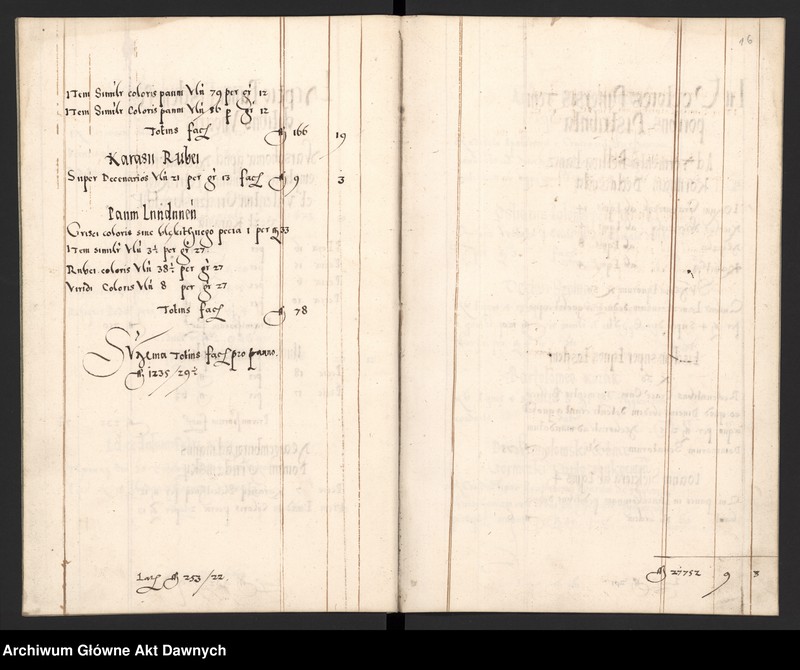 Item Similr coloris panni Vln 79 per gr 12
Item Similr Coloris panni Vln 86 p gr 12
Totius facz fl 166 19
Karasii Rubei
Super Decenarios Vln 21 per gr 13 facz fl 9 3
Panni Lundunen
Grisei coloris sine blękithnego pecia 1 per fl 33
Item similr Vln 3½ per gr 27
Rubei coloris Vln 38½ per gr 27
Viridi Coloris Vln 8 per gr 27
Totius facz fl 78
Summa totius facz pro panno.
fl 1235/29½
Latz fl 253/22.
46
fl 27752 9 3
Archiwum Główne Akt Dawnych